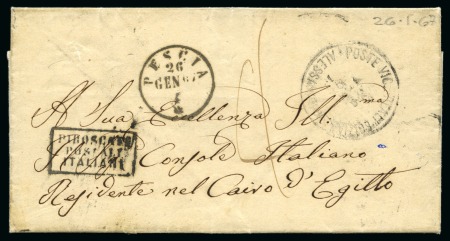 26-1-67
PESCIA
26
GEN 67
POSTE VIC
ALESS
A Sua Eccellenza Ill:ma
Console Italiano
Residente nel Cairo d'Egitto
PIROSCAFI
POSTALI
ITALIANI